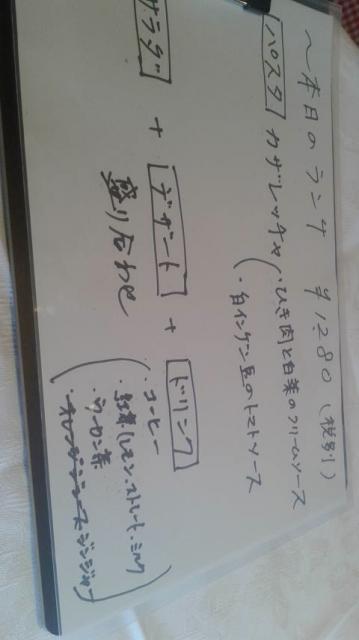 ～本日のランチ ￥1280（税別）
パスタ カザレッチェ
・ひき肉と白菜のクリームソース
・白インゲン豆のトマトソース
サラダ + デザート + ドリンク
盛り合わせ
・コーヒー
・紅茶(レモン、ストレート、ミルク
・ウーロン茶
・オレンジジュース ジンジャー